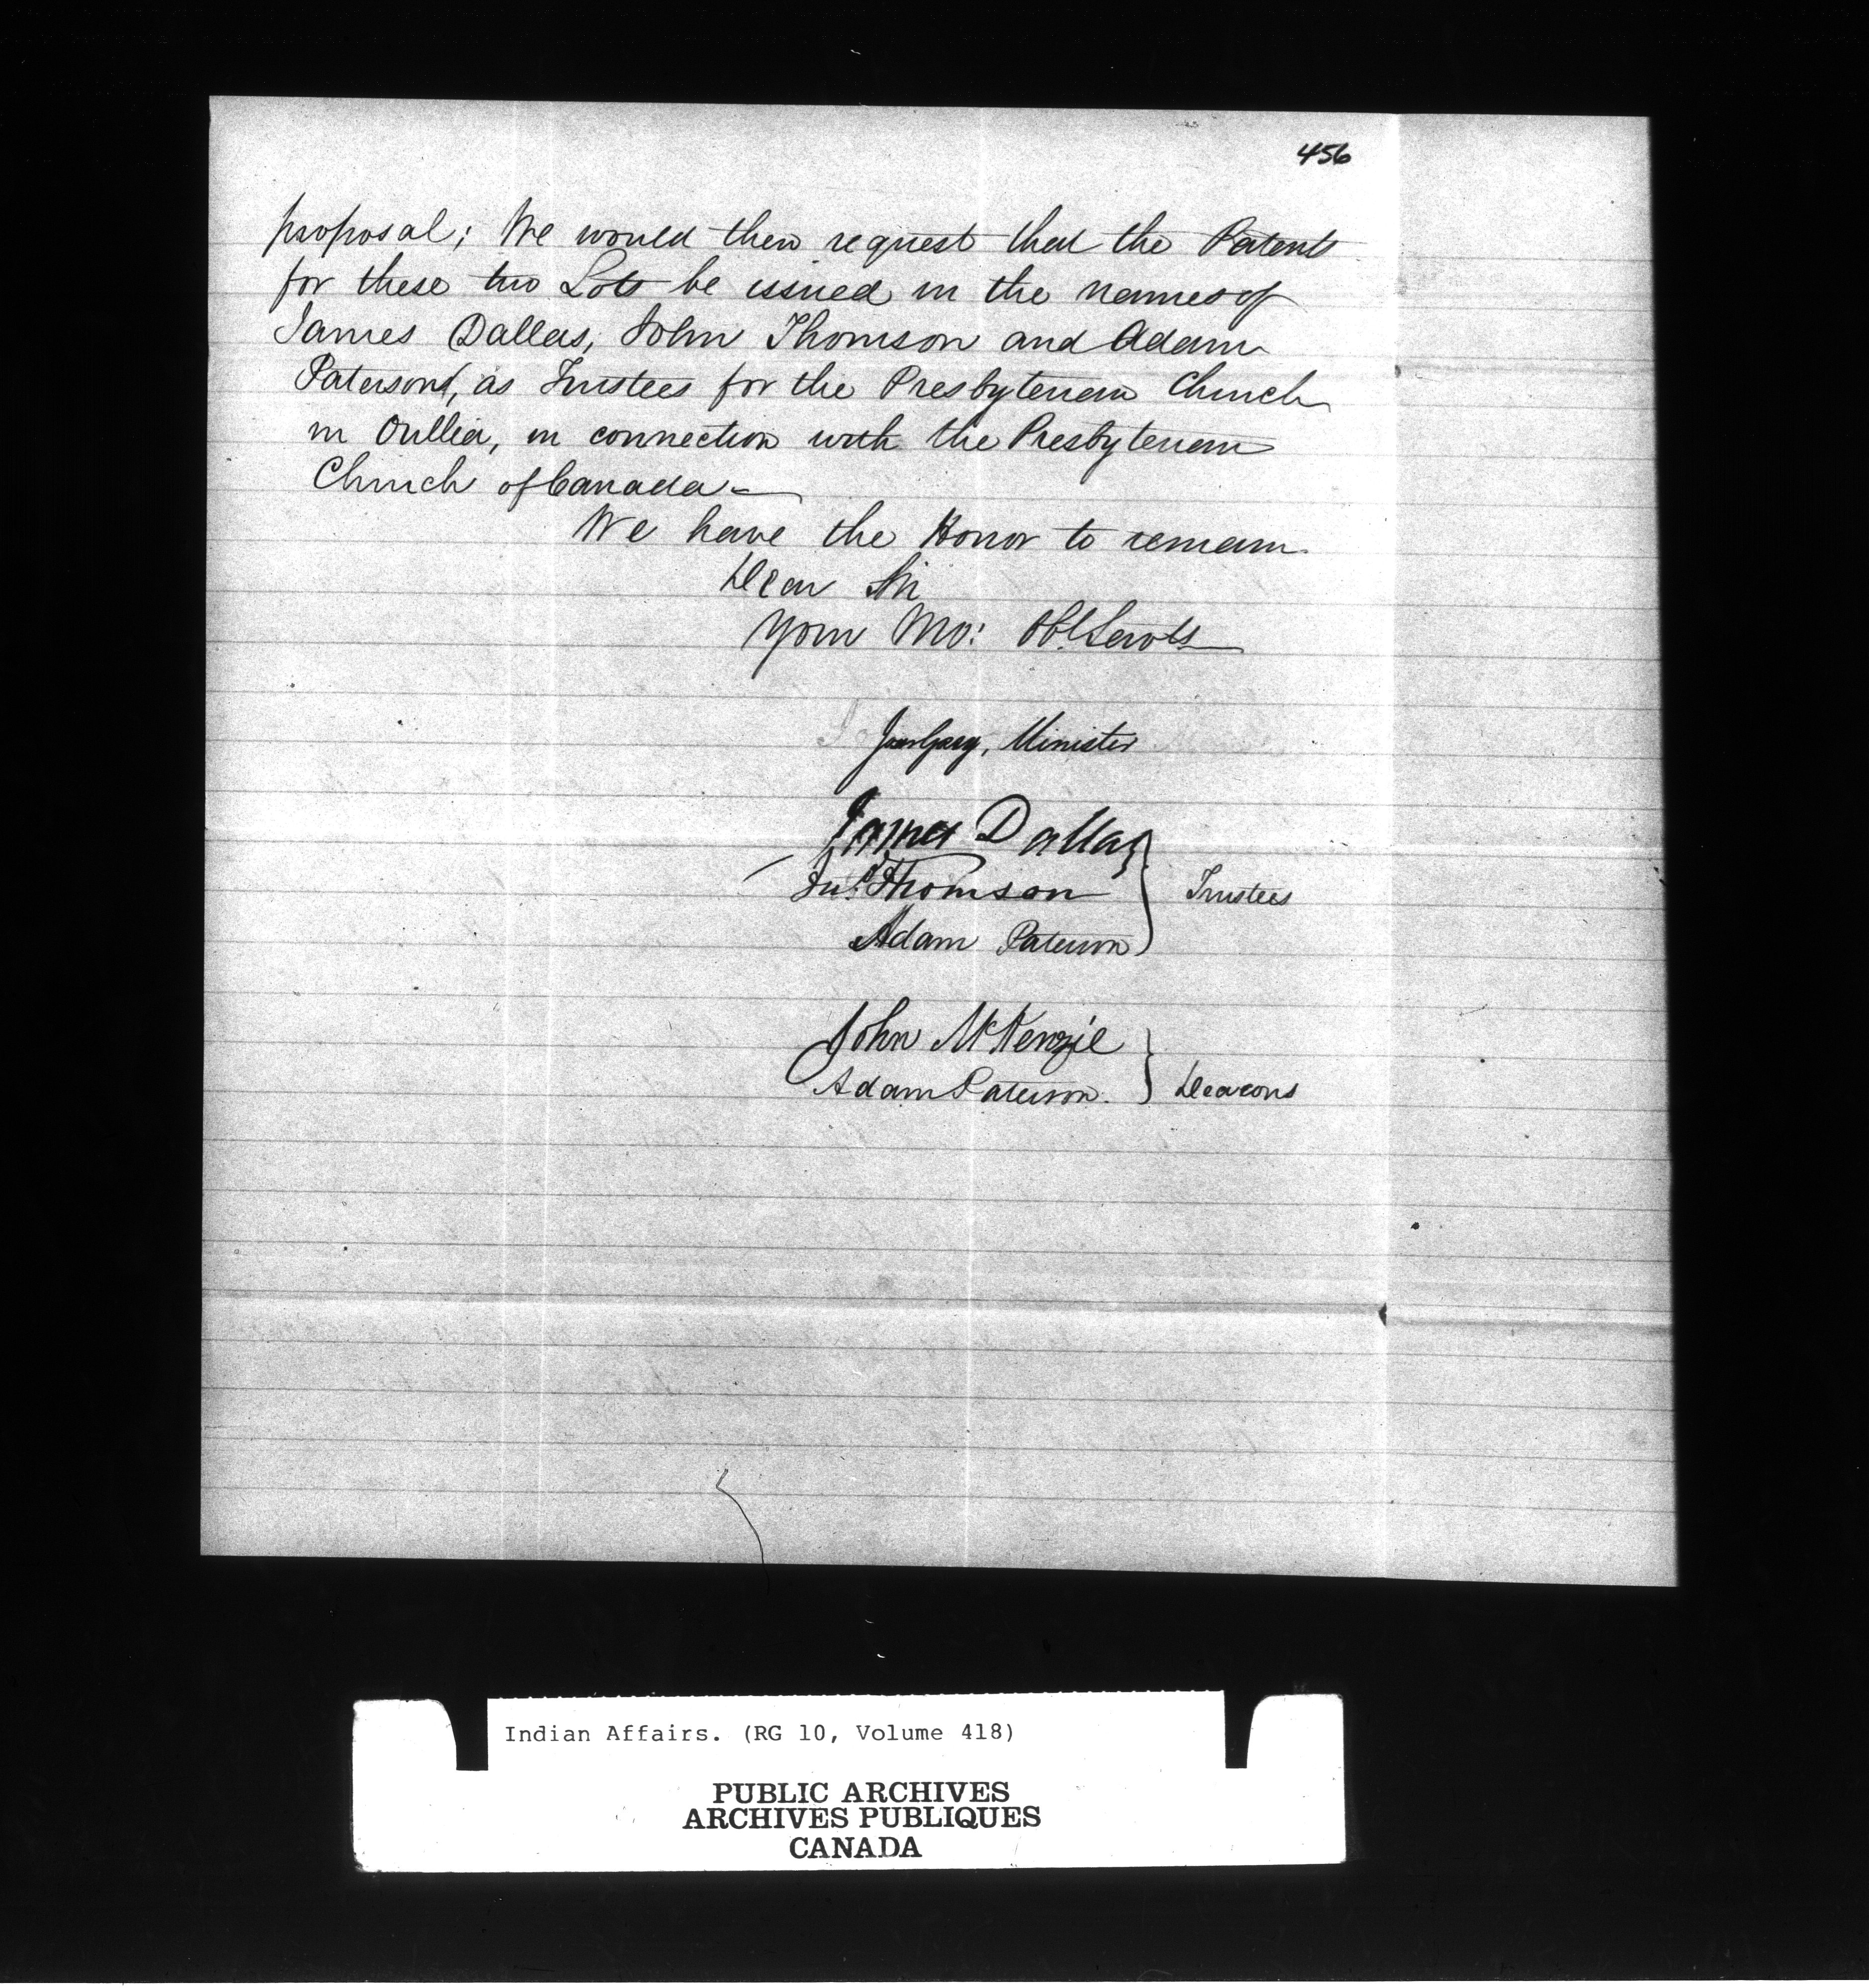 456
proposal; We would then request that the Patents
for these two Lots be issued in the names of
James Dallas, John Thomson and Adam
Paterson, as Trustees for the Presbyterian Church
in Orillia, in connection with the Presbyterian
Church of Canada —
We have the Honor to remain
Dear Sir
Your Mo: Obt. Servts
Gray, Minister
James Dallas
Jno. Thomson
Trustees
Adam Paterson
John McKenzie
Adam Paterson.
Deacons
Indian Affairs. (RG 10, Volume 418)
PUBLIC ARCHIVES
ARCHIVES PUBLIQUES
CANADA